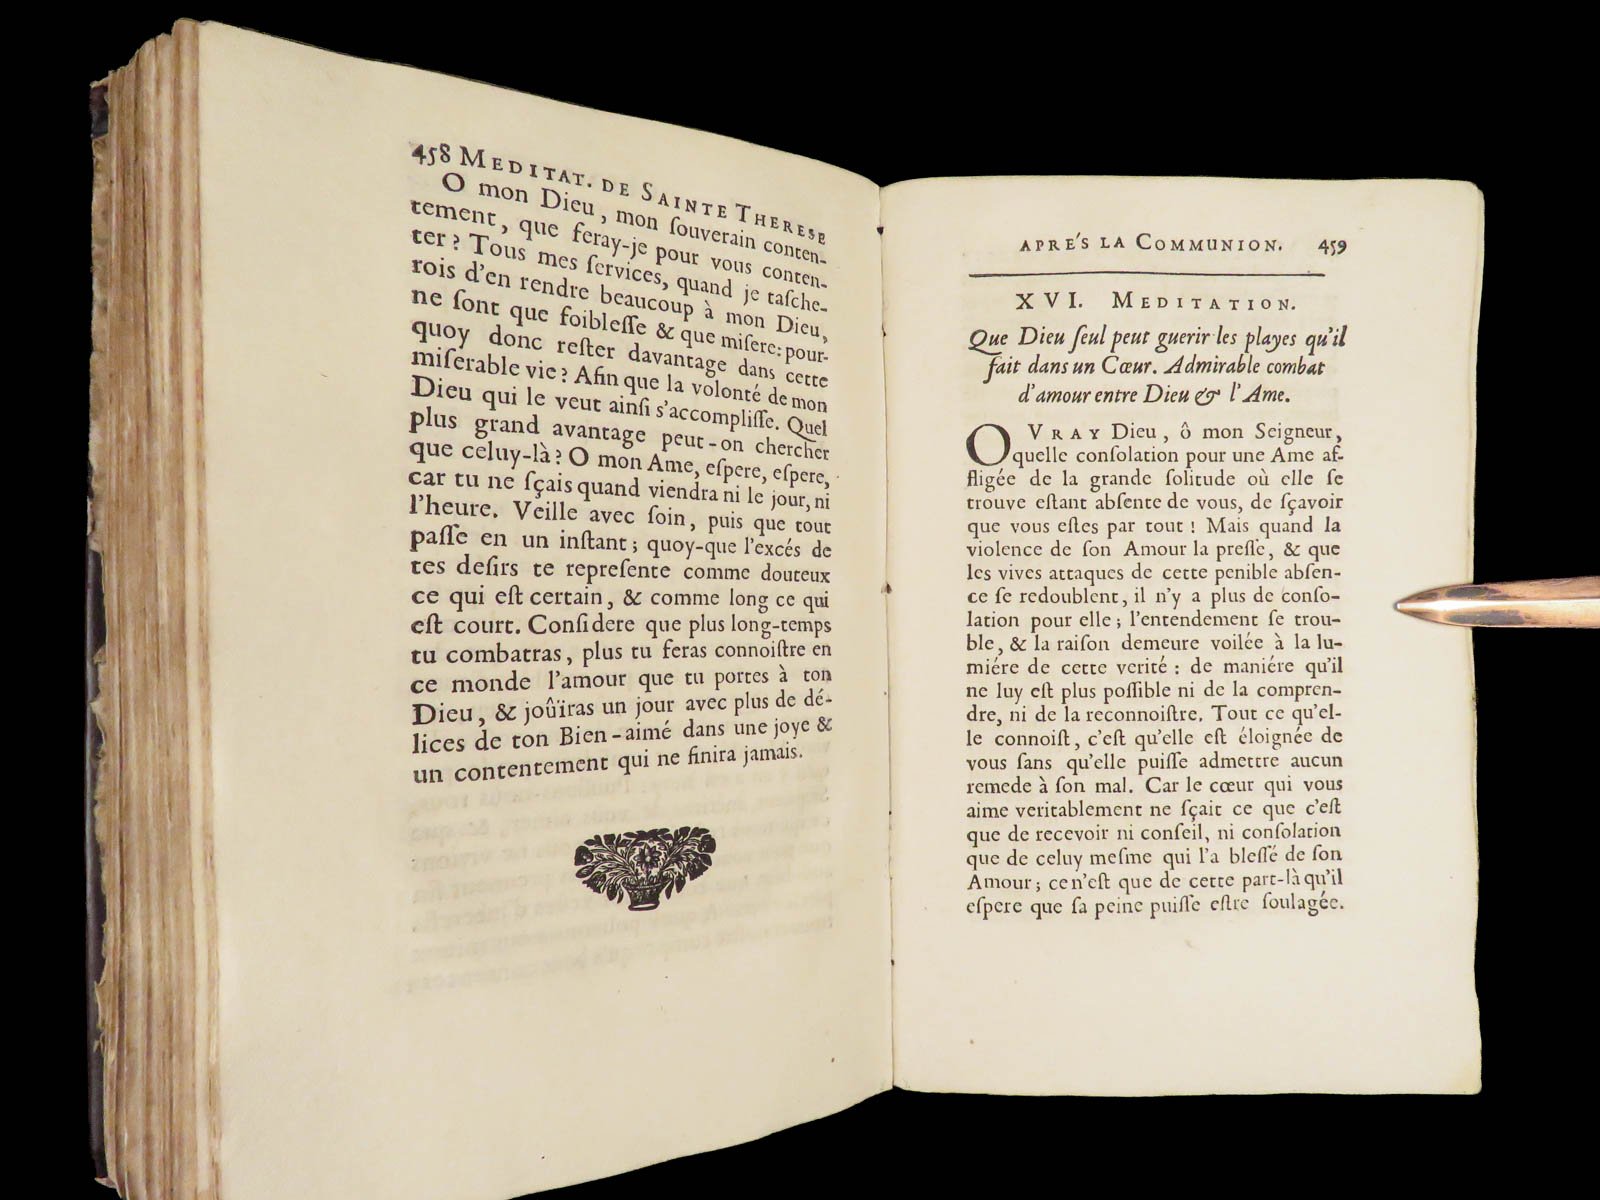 458 MEDITAT. DE SAINTE THERESE
O mon Dieu, mon ſouverain conten-
tement, que feray-je pour vous conten-
ter? Tous mes ſervices, quand je taſche-
rois d'en rendre beaucoup à mon Dieu,
ne ſont que foibleſſe & que miſere: pour-
quoy donc reſter davantage dans cette
miſerable vie? Afin que la volonté de mon
Dieu qui le veut ainſi s'accompliſſe. Quel
plus grand avantage peut-on chercher
que celuy-là? O mon Ame, eſpere, eſpere,
car tu ne ſçais quand viendra ni le jour, ni
l'heure. Veille avec ſoin, puis que tout
paſſe en un inſtant; quoy-que l'excés de
tes deſirs te repreſente comme douteux
ce qui eſt certain, & comme long ce qui
eſt court. Conſidere que plus long-temps
tu combatras, plus tu feras connoiſtre en
ce monde l'amour que tu portes à ton
Dieu, & joûïras un jour avec plus de dé-
lices de ton Bien-aimé dans une joye &
un contentement qui ne finira jamais.
APRE'S LA COMMUNION. 459
XVI. MEDITATION.
Que Dieu ſeul peut guerir les playes qu'il
fait dans un Cœur. Admirable combat
d'amour entre Dieu & l'Ame.
O VRAY Dieu, ô mon Seigneur,
quelle conſolation pour une Ame af-
fligée de la grande ſolitude où elle ſe
trouve eſtant abſente de vous, de ſçavoir
que vous eſtes par tout! Mais quand la
violence de ſon Amour la preſſe, & que
les vives attaques de cette penible abſen-
ce ſe redoublent, il n'y a plus de conſo-
lation pour elle; l'entendement ſe trou-
ble, & la raiſon demeure voilée à la lu-
miére de cette verité: de maniére qu'il
ne luy eſt plus poſſible ni de la compren-
dre, ni de la reconnoiſtre. Tout ce qu'el-
le connoiſt, c'eſt qu'elle eſt éloignée de
vous ſans qu'elle puiſſe admettre aucun
remede à ſon mal. Car le cœur qui vous
aime veritablement ne ſçait ce que c'eſt
que de recevoir ni conſeil, ni conſolation
que de celuy meſme qui l'a bleſſé de ſon
Amour; ce n'eſt que de cette part-là qu'il
eſpere que ſa peine puiſſe eſtre ſoulagée.